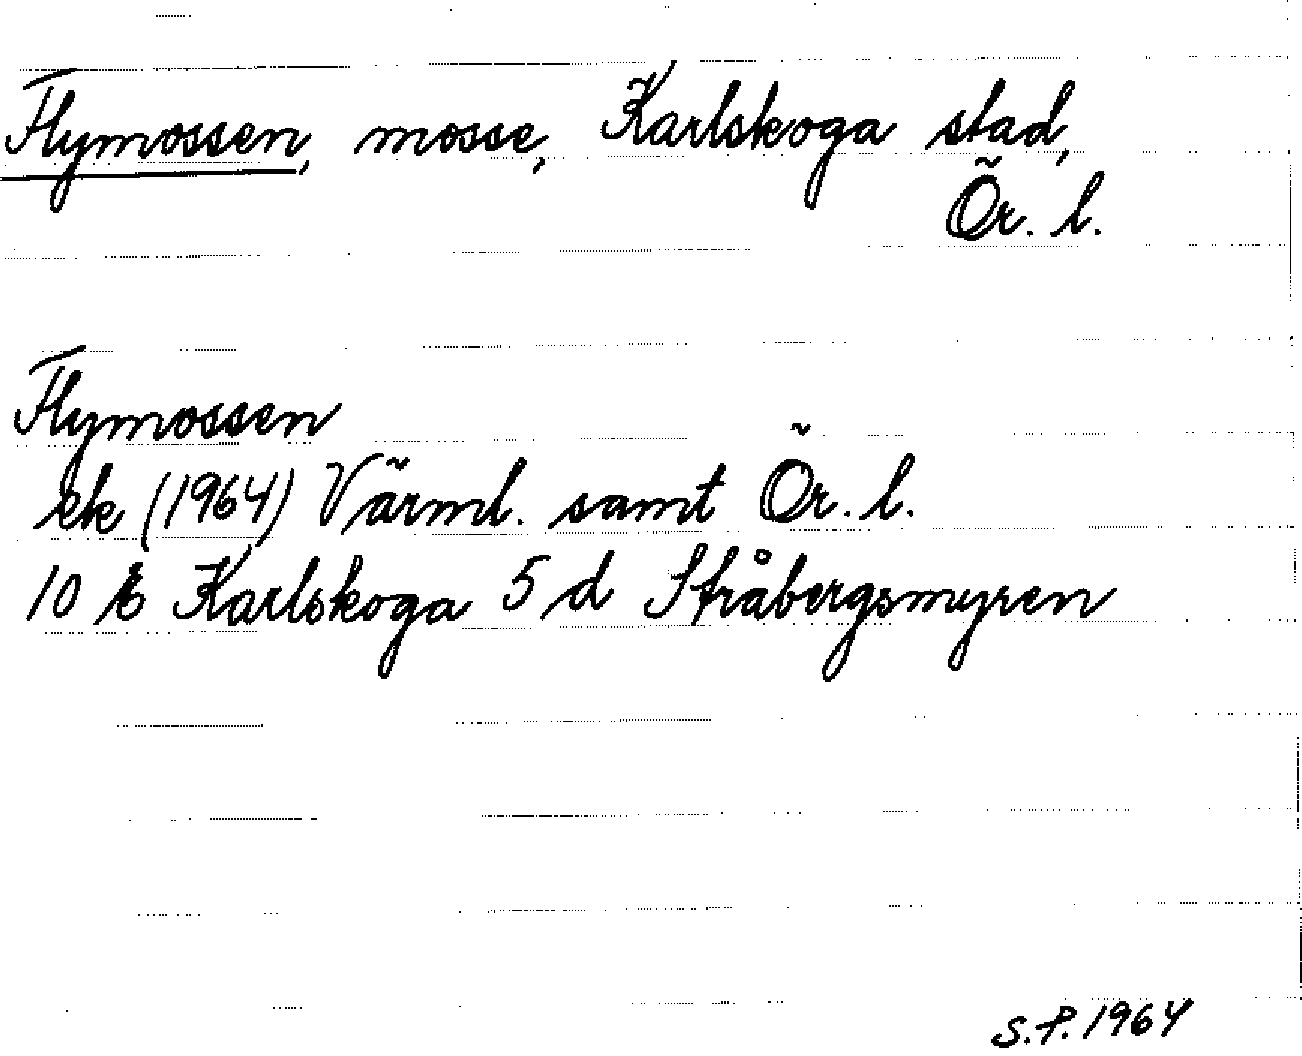 Flymossen, mosse, Karlskoga stad,
Ör. l.
Flymossen
ek (1964) Värml. samt Ör. l.
10 E Karlskoga 5 d Stråbergsmyren
S.P. 1964